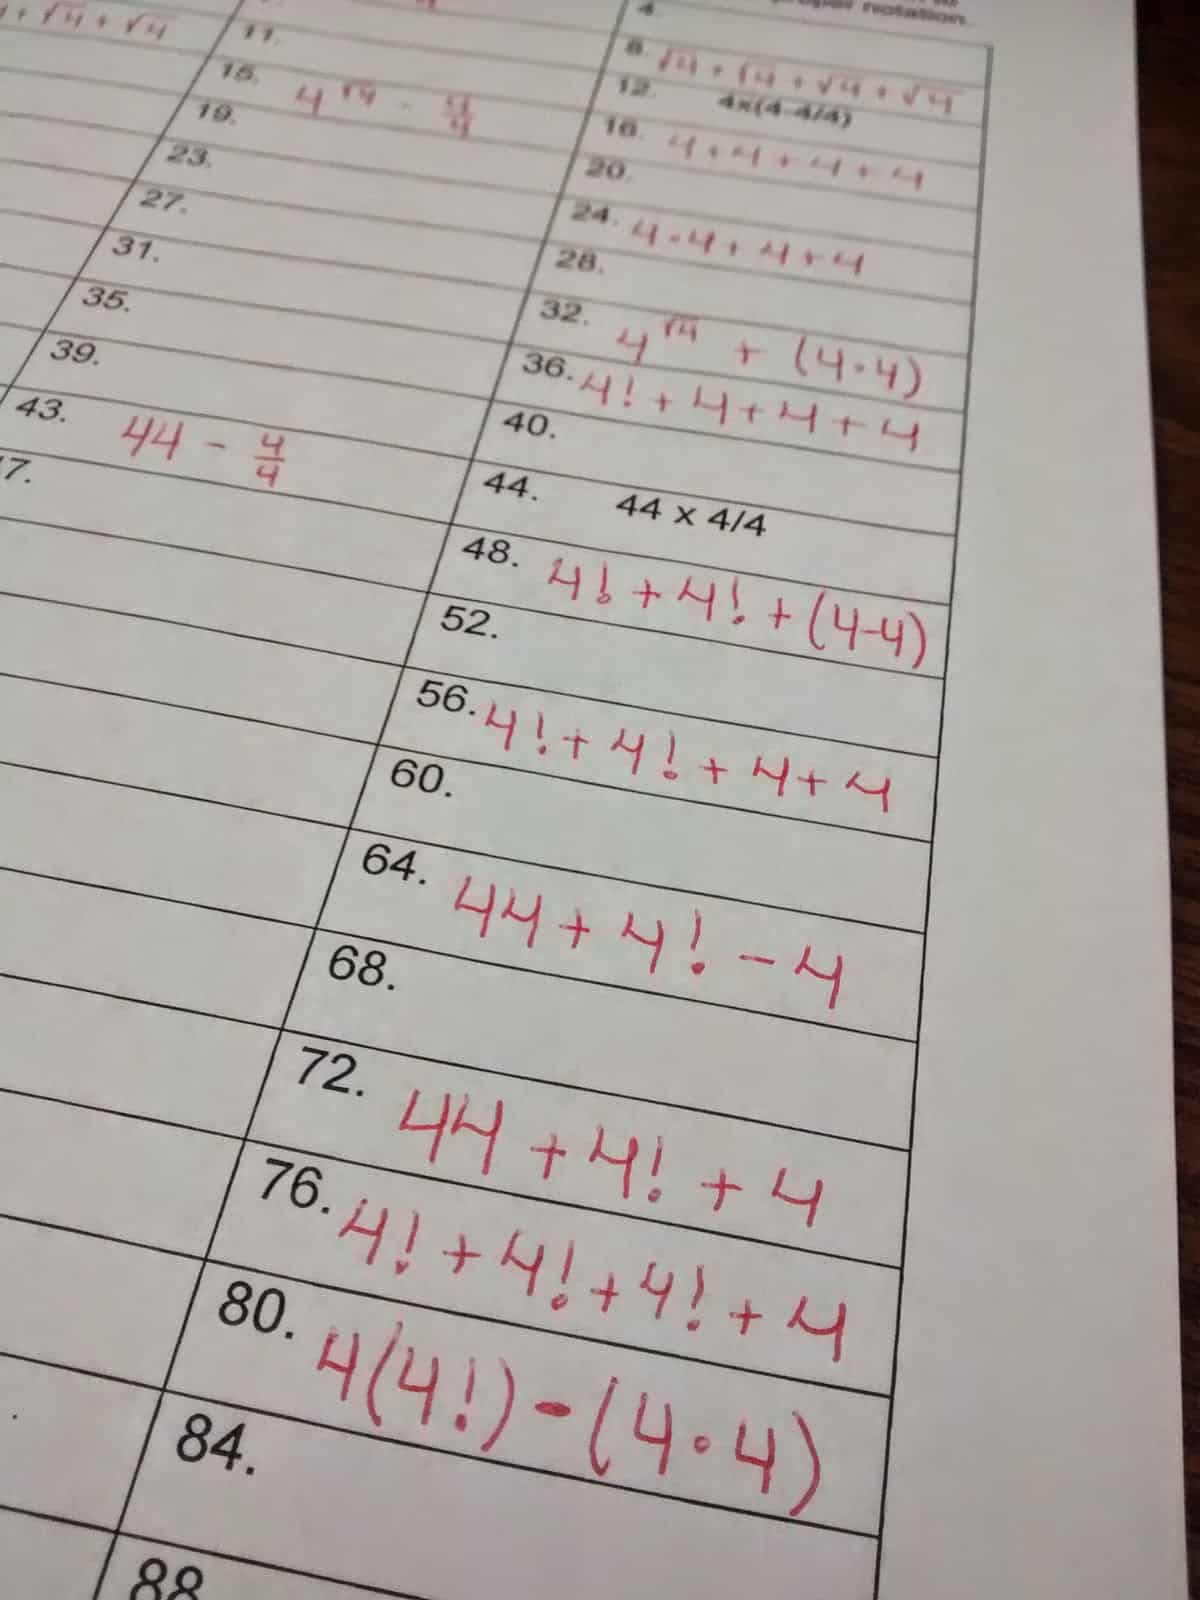 notation.
+ √4 + √4
11.
4.
8. √4 + √4 + √4 + √4
15. 4^√4 - 4/4
12. 4x(4-4/4)
19.
16. 4 + 4 + 4 + 4
23.
20.
27.
24. 4·4 + 4 + 4
31.
28.
35.
32. 4^√4 + (4·4)
39.
36. 4! + 4 + 4 + 4
43. 44 - 4/4
40.
7.
44. 44 x 4/4
48. 4! + 4! + (4-4)
52.
56. 4! + 4! + 4 + 4
60.
64. 44 + 4! - 4
68.
72. 44 + 4! + 4
76. 4! + 4! + 4! + 4
80. 4(4!) - (4·4)
84.
88